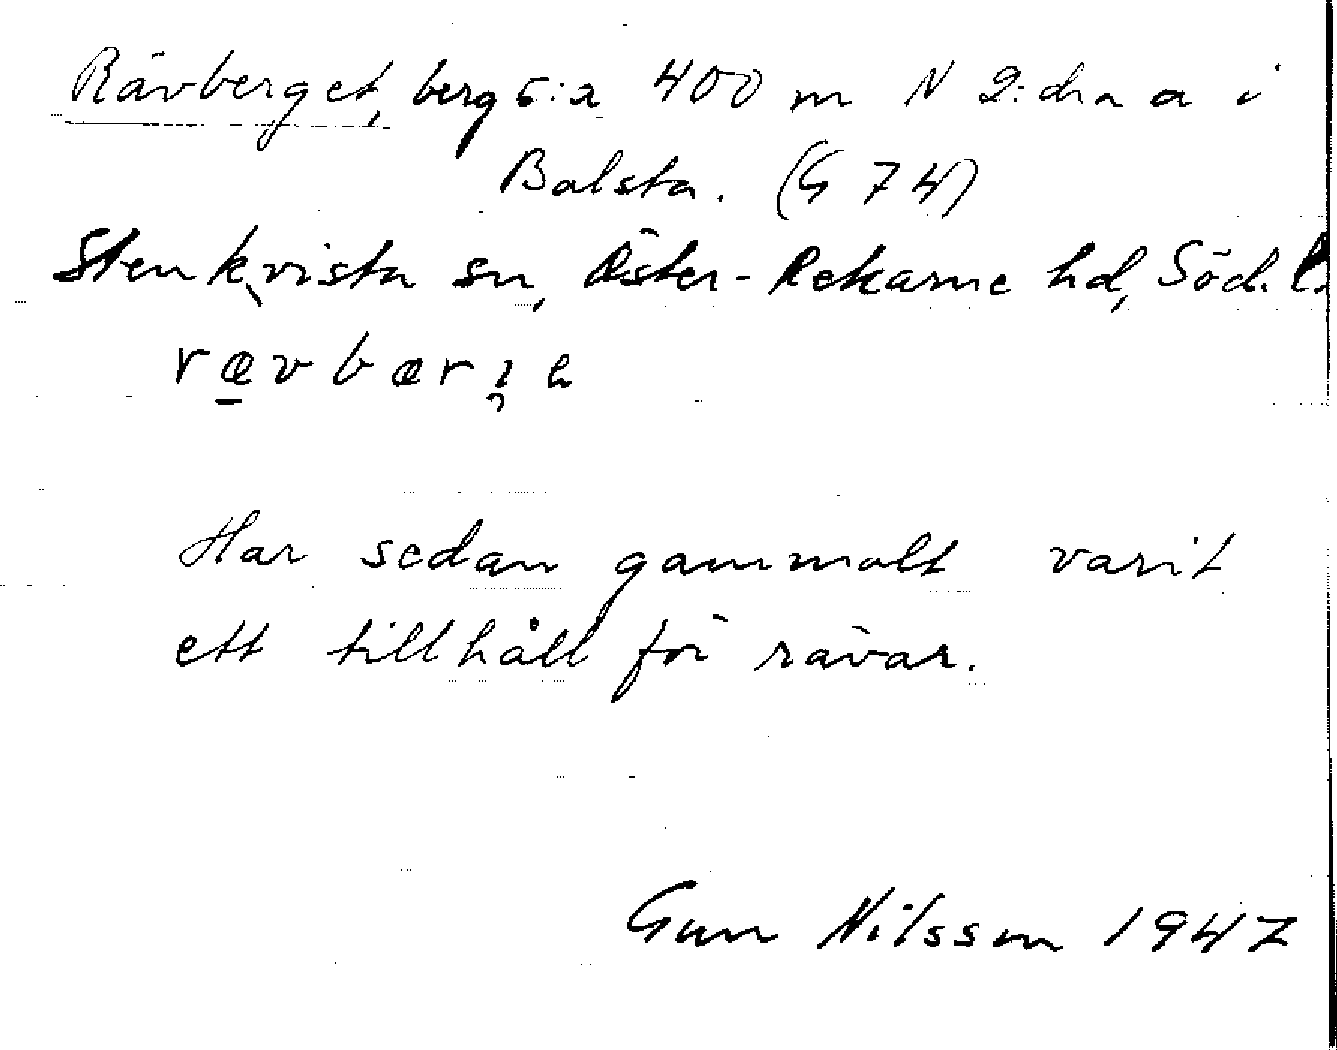 Rävberget, berg c:a 400 m N 2:dra a i
Balsta. (G 74)
Stenkvista sn, Öster-Rekarne hd, Söd. l.
rævbær
Har sedan gammalt varit
ett tillhåll för rävar.
Gun Nilsson 1947